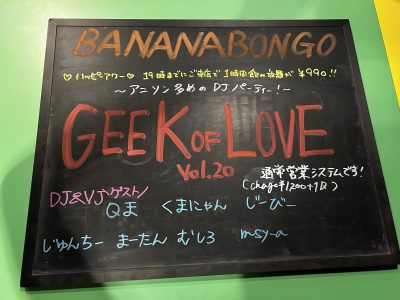 BANANABONGO
♡ハッピーアワー♡ 19時までにご来店で 1時間飲み放題が ¥990!!
〜アニソン多めのDJパーティー!〜
GEEK OF LOVE
Vol.20
通常営業システムです!
(charge¥1200+1D)
DJ&VJゲスト
Qま くまにゃん じーびー
じゅんちー まーたん むしろ msy-a